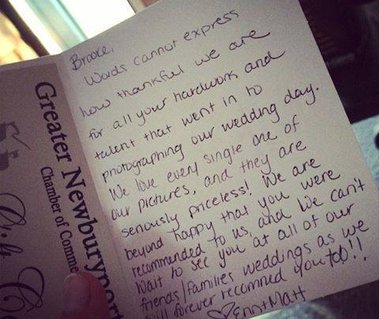 Greater Newburyport
Chamber of Comme
Brooke,
Words cannot express
how thankful we are
for all your hardwork and
talent that went in to
photographing our wedding day.
We love every single one of
our pictures, and they are
seriously priceless! We are
beyond happy that you were
recommended to us, and we can't
wait to see you at all of our
friends/families weddings as we
will forever recommend you too!!
♡ Matt